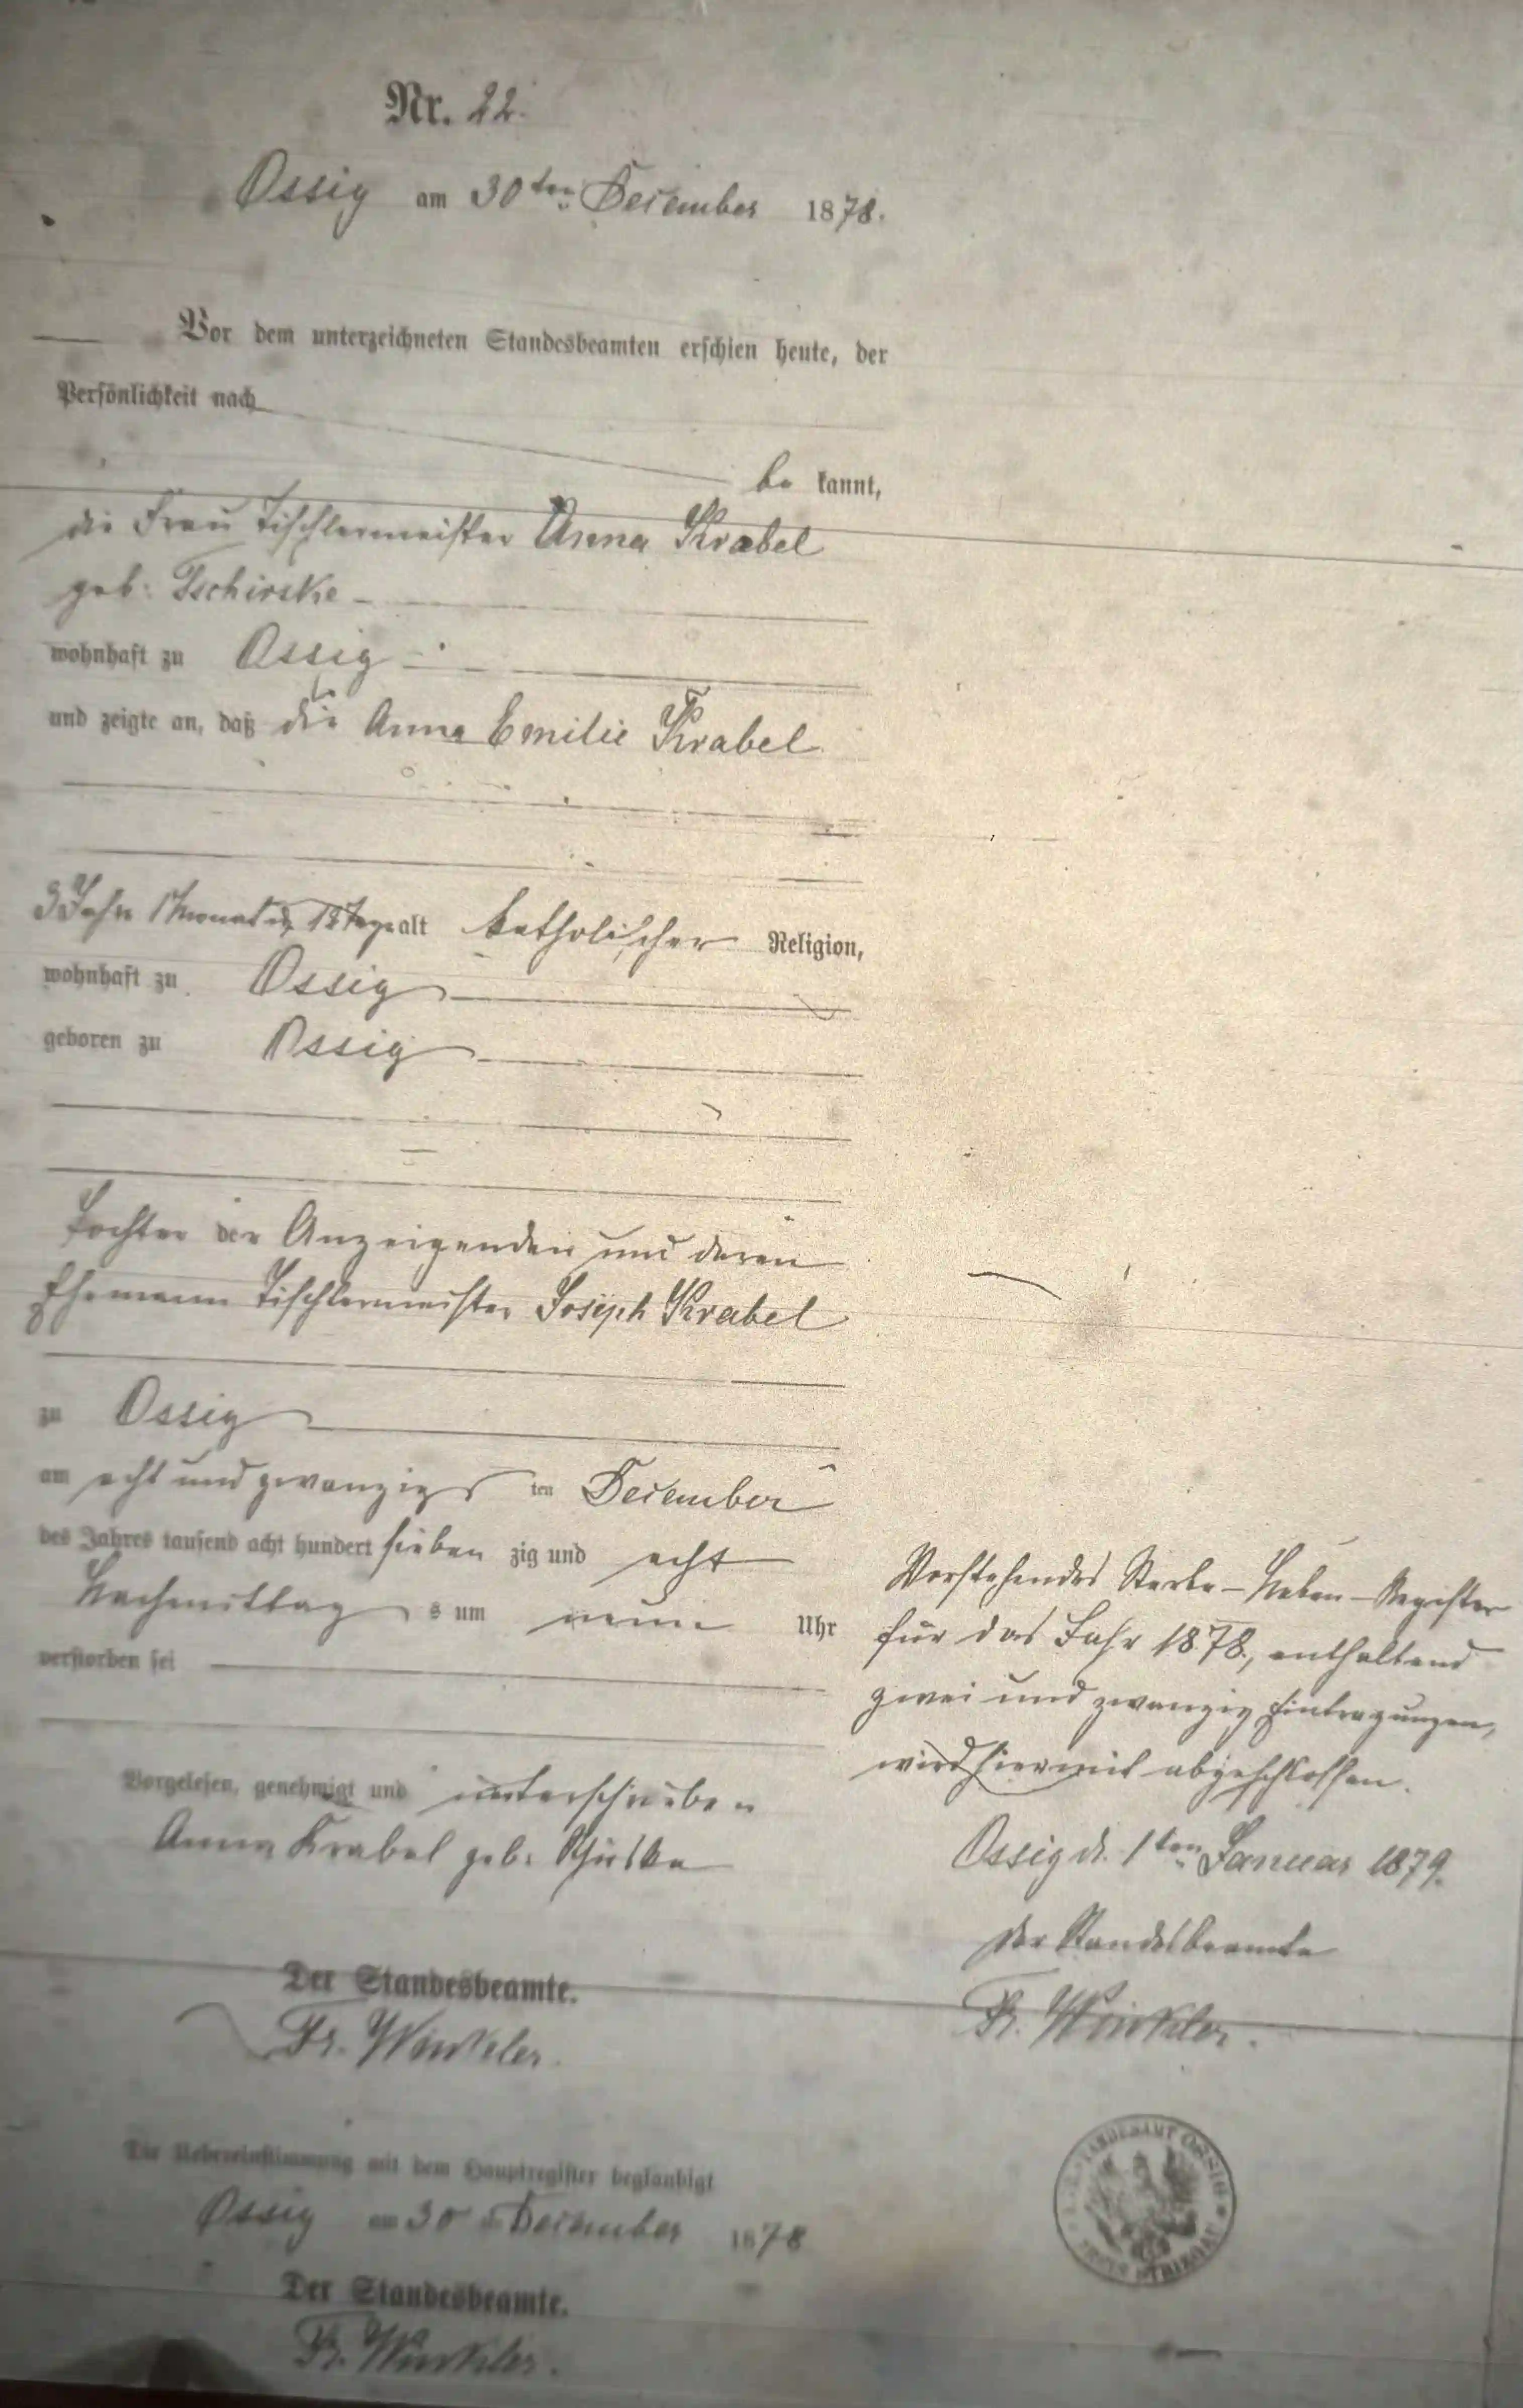 Nr. 22.
Ossig am 30ten December 1878.
Vor dem unterzeichneten Standesbeamten erschien heute, der
Persönlichkeit nach
be kannt,
die Frau Tischlermeister Anna Krabel
geb: Tschirske
wohnhaft zu Ossig
und zeigte an, daß die Anna Emilie Krabel
3 Jahr 1 Monat 18 Tage alt katholischer Religion,
wohnhaft zu Ossig
geboren zu Ossig
Tochter der Anzeigenden und deren
Ehemann Tischlermeister Joseph Krabel
zu Ossig
am acht und zwanzigs ten December
des Jahres tausend acht hundert sieben zig und acht
Nachmittag s um neun Uhr
verstorben sei
Vorgelesen, genehmigt und unterschrieben
Anna Krabel geb:
Der Standesbeamte.
Fr. Winkler.
Die Uebereinstimmung mit dem Hauptregister beglaubigt
Ossig am 30 December 1878
Der Standesbeamte.
Fr. Winkler.
Vorstehendes Sterbe-Neben-Register
für das Jahr 1878, enthaltend
zwei und zwanzig Eintragungen,
wird hiermit abgeschlossen.
Ossig d. 1ten Januar 1879.
Der Standesbeamte
Fr. Winkler.
STANDESAMT OSSIG
KREIS STRIEGAU